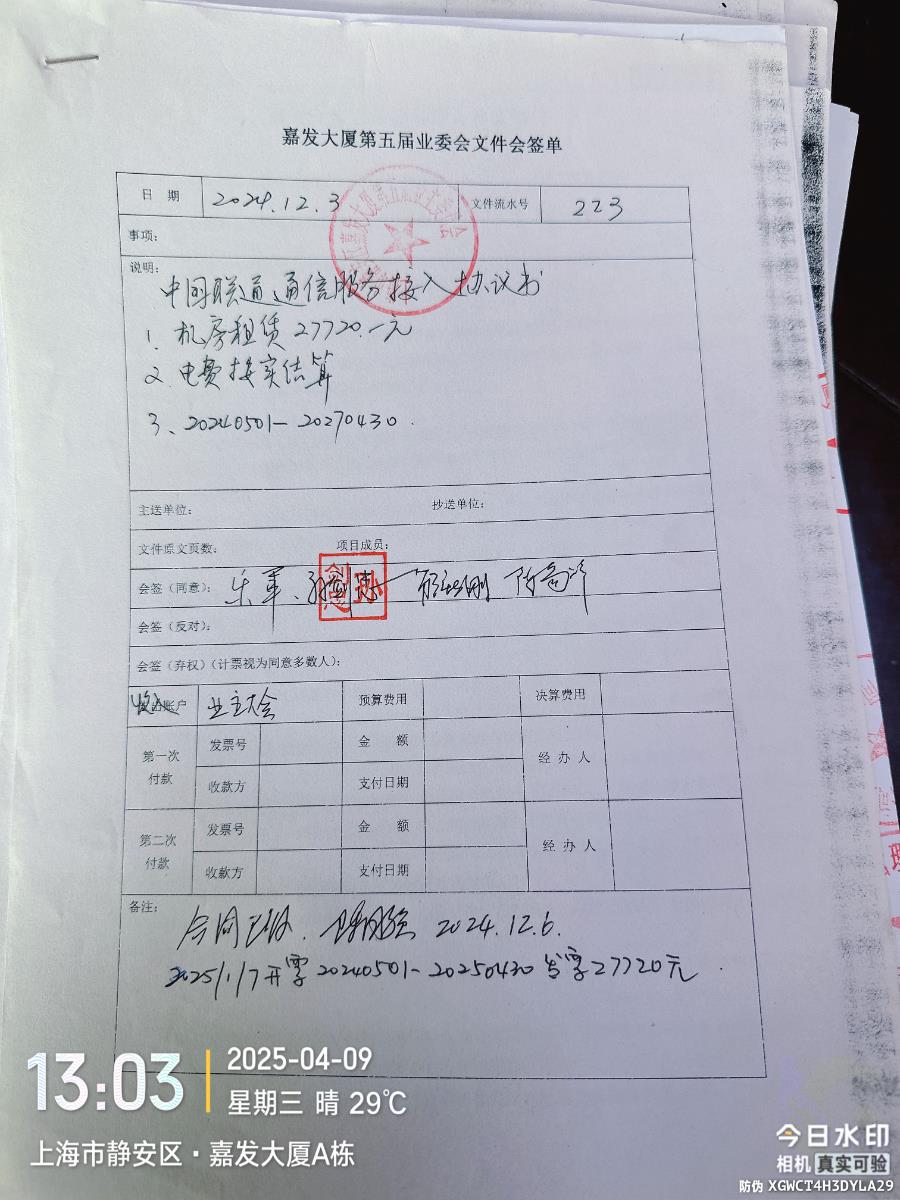 嘉发大厦第五届业委会文件会签单
日 期 2024.12.3 文件流水号 223
事项：
说明：
中国联通通信服务接入协议书
1. 机房租赁 27720.-元
2. 电费按实结算
3、20240501-20270430.
主送单位： 抄送单位：
文件原文页数： 项目成员：
会签（同意）： 乐军
会签（反对）：
会签（弃权）（计票视为同意多数人）：
收入账户 业主大会 预算费用 决算费用
第一次付款 发票号 金 额 经 办 人
收款方 支付日期
第二次付款 发票号 金 额 经 办 人
收款方 支付日期
备注：
合同已收. 2024.12.6.
2025/1/7开票 20240501-20250430 发票27720元.
13:03 2025-04-09
星期三 晴 29℃
上海市静安区·嘉发大厦A栋
今日水印
相机 真实可验
防伪 XGWCT4H3DYLA29